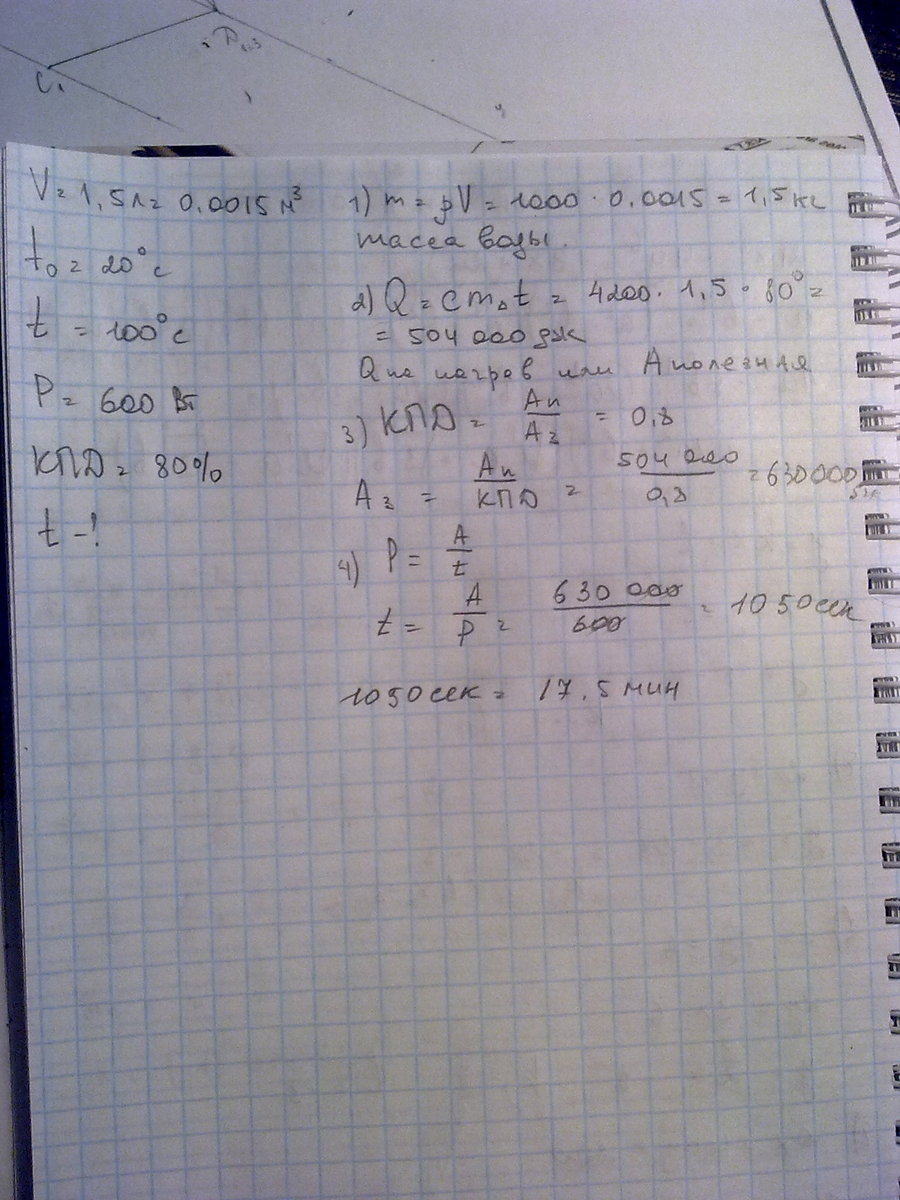 C₁
V = 1,5л = 0,0015 м³
t₀ = 20°c
t = 100°c
P = 600 Вт
КПД = 80%
t - ?
1) m = ρV = 1000 · 0,0015 = 1,5 кг
масса воды.
2) Q = cm△t = 4200 · 1,5 · 80° =
= 504 000 дж
Q на нагрев или A полезная
3) КПД = Aп/Aз = 0,8
Aз = Aп/КПД = 504 000/0,8 = 630000 дж
4) P = A/t
t = A/P = 630 000/600 = 1050 сек
1050 сек = 17,5 мин